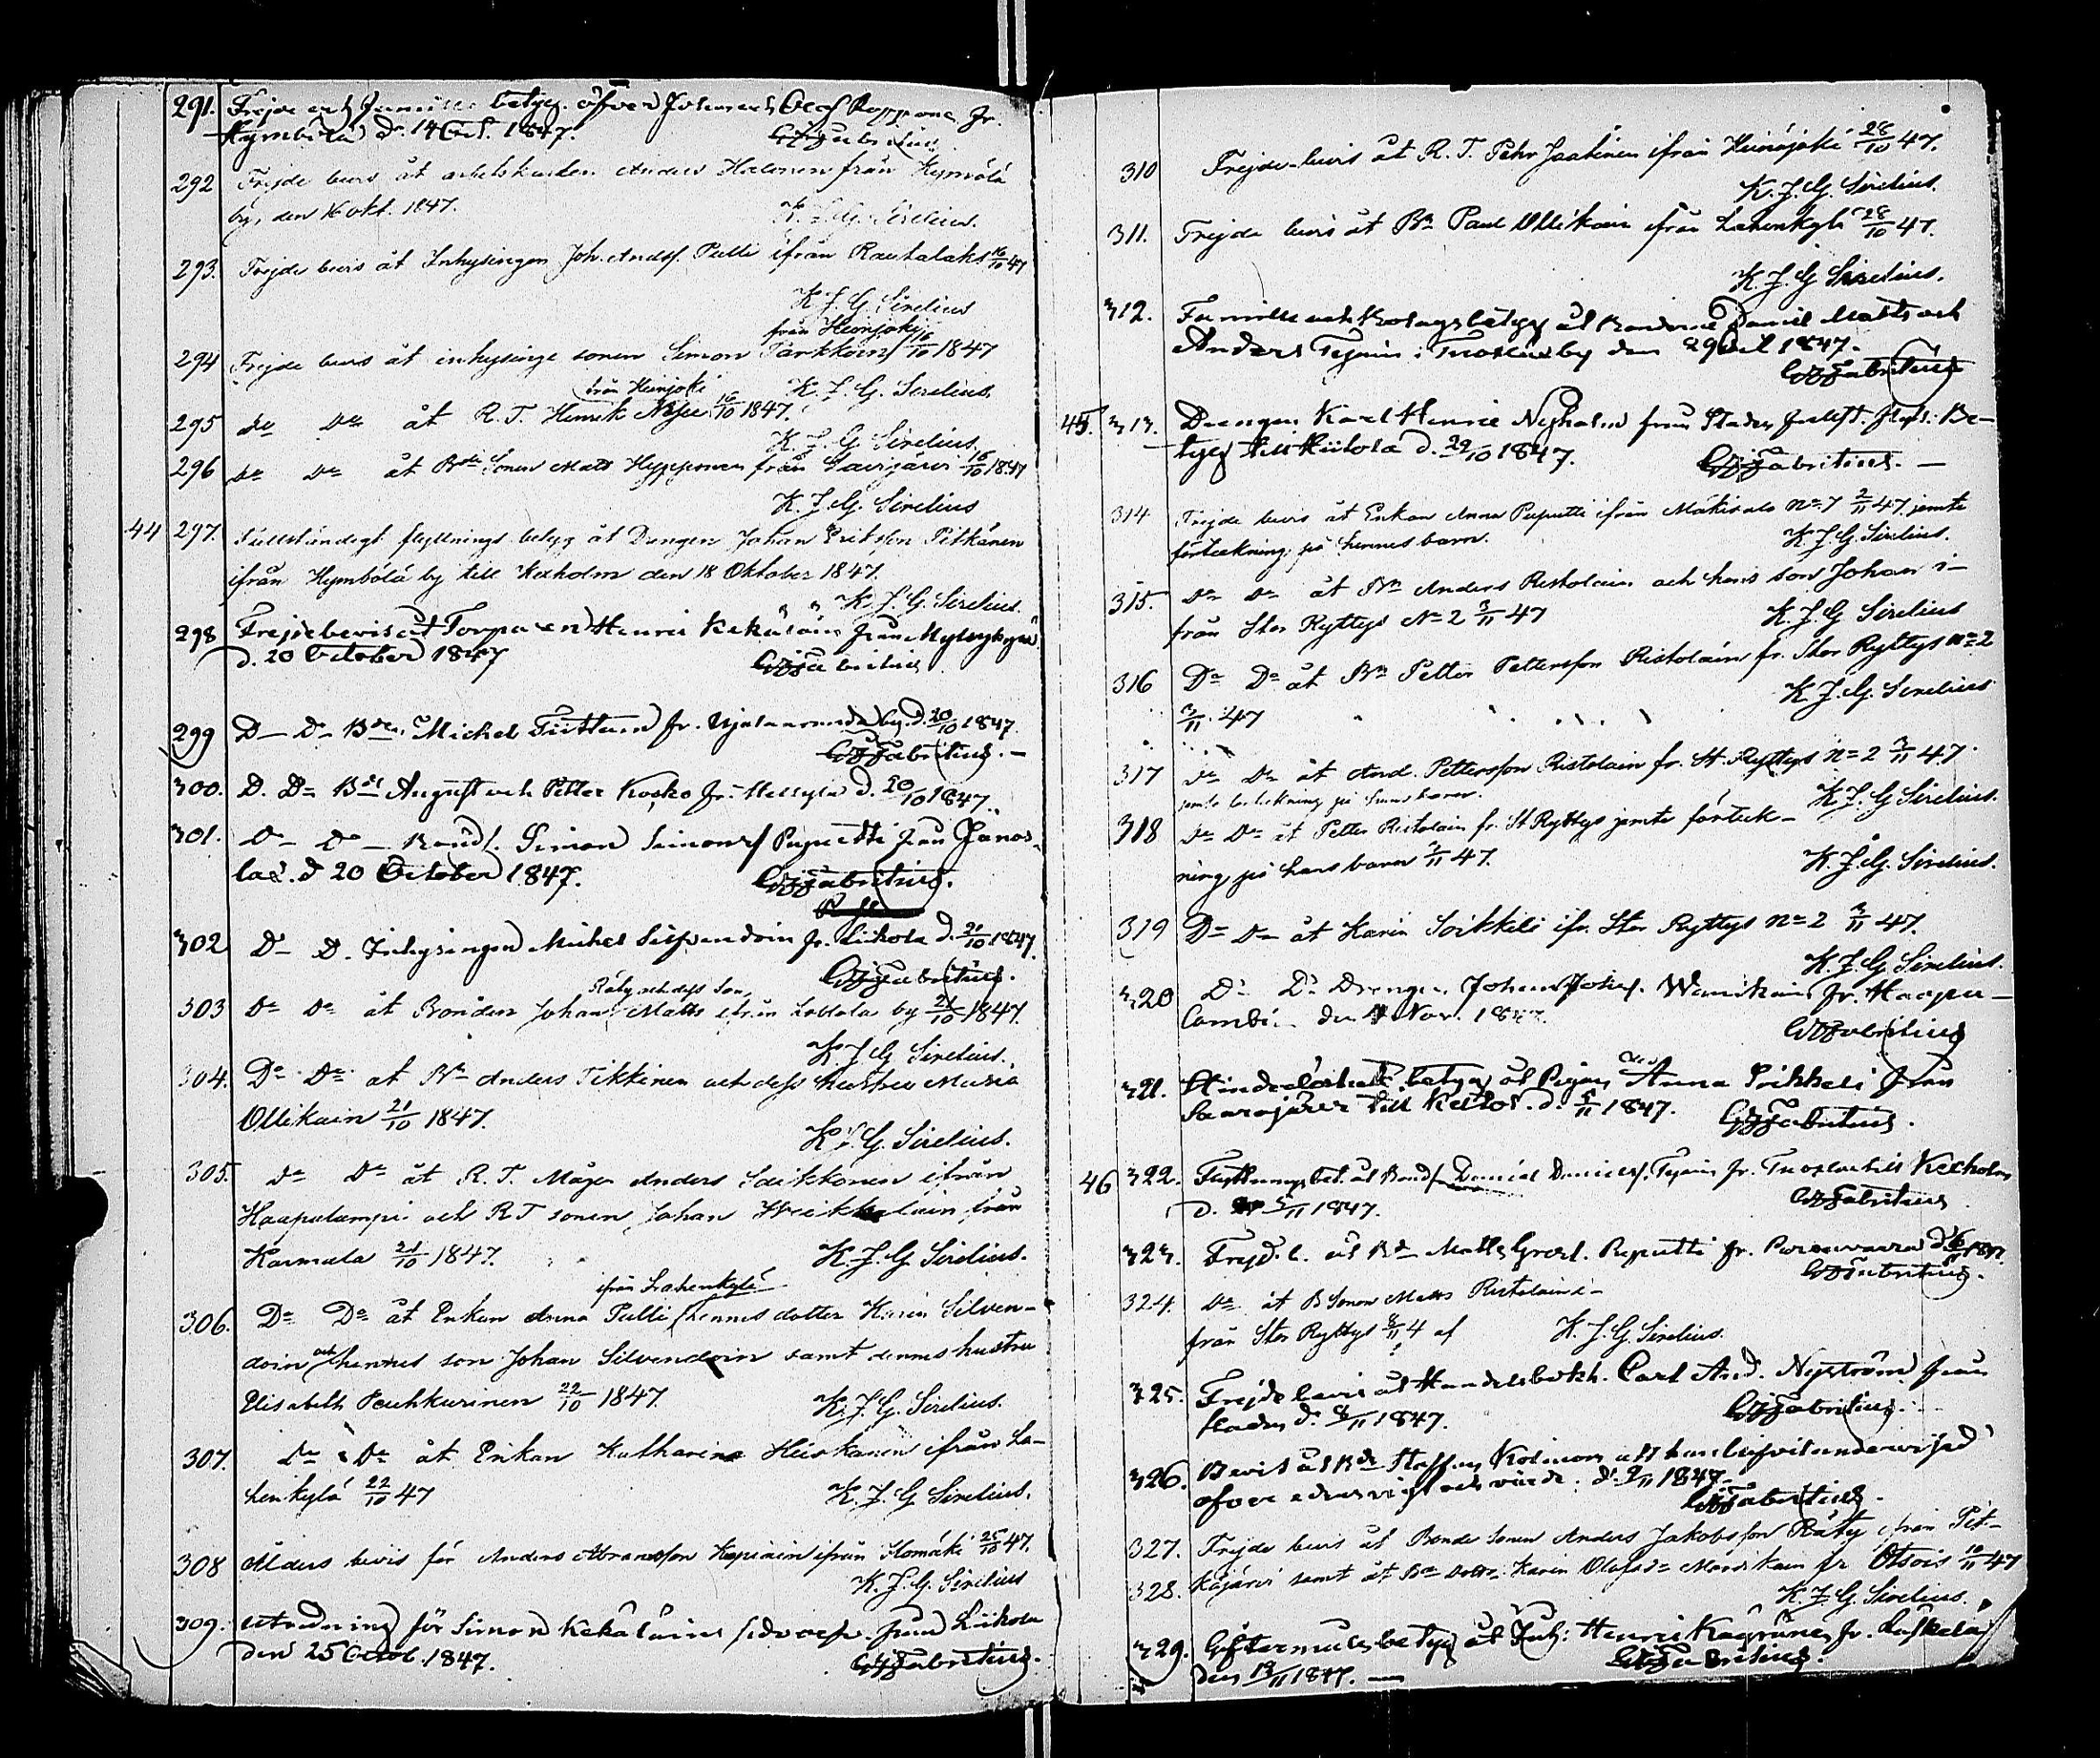 291. Frejde och Familie betyg öfver Johan och Olof Roppone fr.
Kymbölä d. 14 Oct. 1847. Fabritius
292 Frejde bevis åt arbetskarlen Anders Halonen från Kymölä
by, den 16 okt. 1847. K. J. G. Sirelius.
293. Frejde bevis åt Inhysingen Joh. Andss. Pulli ifrån Rautalaks 16/10 47
K. J. G. Sirelius
från Heinjoki
294 Frejde bevis åt inhysinge sonen Simon Tarkkain 16/10 1847
från Heinjoki K. J. G. Sirelius.
295 do Do åt R. T. Henrik 16/10 1847.
K. J. G. Sirelius.
296 do Do åt Bde Sonen Mats Hypponen från Saarjärvi 16/10 1847
K. J. G. Sirelius
44 297. Fullständigt flyttnings betyg åt Drengen Johan Eriksson Pitkänen
ifrån Kymbölä by till Kexholm den 18 Oktober 1847.
K. J. G. Sirelius.
298 Frejdebevis åt Torparen Henric Kekäläin från
d. 20 October 1847 Fabritius
299 D- Do Bden Michel Tiittain fr. by. d. 20/10 1847.
Fabritius. -
300. D. Do Bd August och Petter Kosko fr. d. 20/10 1847.
301. Do - Do - Bonds. Simon Simonss Puputti från Jänos-
lax. d 20 October 1847. Fabritius.
302 D- D. Inhysingen Michel Silfvendoin fr. Liikola d. 21/10 1847.
Fabritius.
Räty och dess son
303 Do Do åt Bonden Johan Matts ifrån by 21/10 1847.
K. J. G. Sirelius.
304. Do Do at Bn Anders Tikkinen och dess hustru Maria
Ollikain 21/10 1847.
K. J. G. Sirelius.
305. do Do åt R. T. Mågen Anders Saikkonen ifrån
Haapalampi och R T sonen Johan från
Karmala 21/10 1847. K. J. G. Sirelius.
ifrån Lahenkylä
306. Do Do åt Enkan Anna Pulli, hennes dotter Karin Silven-
doin och hennes son Johan Silvendoin samt dennes hustru
Elisabeth Peuhkurinen 22/10 1847. K. J. G. Sirelius.
307. do Do åt Enkan Katharina Heiskanen ifrån La-
henkylä 22/10 47 K. J. G. Sirelius.
308 Ålders bevis för Anders Abramsson Kapiain ifrån Komäki 25/10 47.
K. J. G. Sirelius
309. Utredning för Simon Kekäläinen från Liikola
den 25 Octob. 1847. Fabritius.
310 Frejde-bevis åt R. T. Pehr Jaakinen ifrån Heinäjoki 28/10 47.
K. J. G. Sirelius.
311. Frejde bevis åt Bn Paul Ollikain ifrån Lahenkylä 28/10 47.
K. J. G Sirelius.
312. Familie och Bolagsbetyg åt Bönderne Daniel Matts och
Anders i by den 29 Oct 1847.
Fabritius
45. 313. Drengen Karl Henric Nyholm från Staden fullst. flytt. Be-
tyg till Hiitola d. 29/10 1847. Fabritius. -
314 Frejde bevis åt Enkan Anna Puputti ifrån Mäkisalo No 7 2/11 47. jemte
förteckning på hennes barn. K. J. G. Sirelius.
315. do do åt Bn Anders Ristolain och hans son Johan i-
från Stor Ryttys No 2 3/11 47 K. J. G Sirelius
316 Do Do åt Bn Petter Pettersson Ristolain fr. Stor Ryttys No 2
3/11 47 K. J. G. Sirelius
317 do do åt And. Pettersson Ristolain fr. St. Ryttys No 2 3/11 47.
jemte förteckning på hans barn. K. J. G Sirelius.
318 do Do åt Petter Ristolain fr. St Ryttys jemte förteck-
ning på hans barn 3/11 47. K. J. G. Sirelius.
319 Do do åt Karin Soikkeli ifr. Stor Ryttys No 2 3/11 47.
K. J. G. Sirelius.
320 Do Do Drengen Johan fr. Haapa-
lambi den 4 Nov. 1847. Fabritius
321. Hinderlöshets betyg åt Pigan Anna Soikkeli från
Saarajärvi till d. 5/11 1847. Fabritius.
46 322. Flyttnings bet. åt Bonds. Daniel Daniels. fr. till Kexholm
d. 5/11 1847. Fabritius
323. Frejd. b. åt Bd Matts Puputti fr. 1847.
Fabritius.
324. Do åt B Sonen Mats Ristolain i-
från Stor Ryttys 8/11 4 af K. J. G. Sirelius.
325. Frejdebevis åt Handelsbokh. Carl And. Nyström från
staden d. 8/11 1847. Fabritius.
326. Bevis åt Bde Staffan Kolmonen att han blifvit undervisad
öfver edens vigt och värde. d. 9/11 1847.
Fabritius.
327. Frejde bevis åt Bonde Sonen Anders Jakobsson Räty ifrån Pit-
328. käjärvi samt åt Bde Dottr. Karin Olofsdr fr. Otsois 10/11 47
K. J. G. Sirelius.
329. betyg åt Henric fr.
den 12/11 1847. - Fabritius.